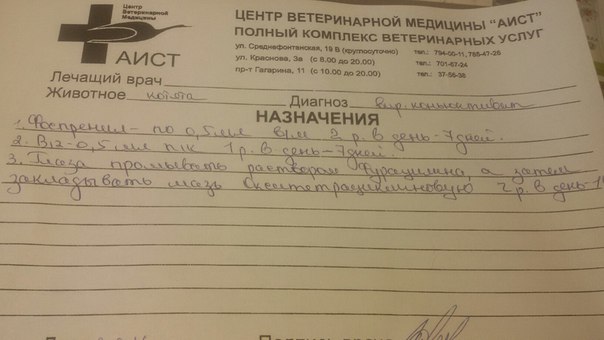 Центр
Ветеринарной
Медицины
АИСТ
ЦЕНТР ВЕТЕРИНАРНОЙ МЕДИЦИНЫ "АИСТ"
ПОЛНЫЙ КОМПЛЕКС ВЕТЕРИНАРНЫХ УСЛУГ
ул. Среднефонтанская, 19 В (круглосуточно) тел.: 794-55-11, 785-47-26
ул. Краснова, 3а (с 8.00 до 20.00) тел.: 701-67-24
пр-т Гагарина, 11 (с 10.00 до 20.00) тел.: 37-56-38
Лечащий врач
Животное котята Диагноз вир. коньюктивит
НАЗНАЧЕНИЯ
1. Фоспренил - по 0,5 мл в/м 2 р. в день - 7 дней.
2. B12 - 0,5 мл п/к 1 р. в день - 7 дней.
3. Глаза промывать раствором Фурацилина, а затем
закладывать мазь Окситетрациклиновую 2 р. в день -
Подпись врача